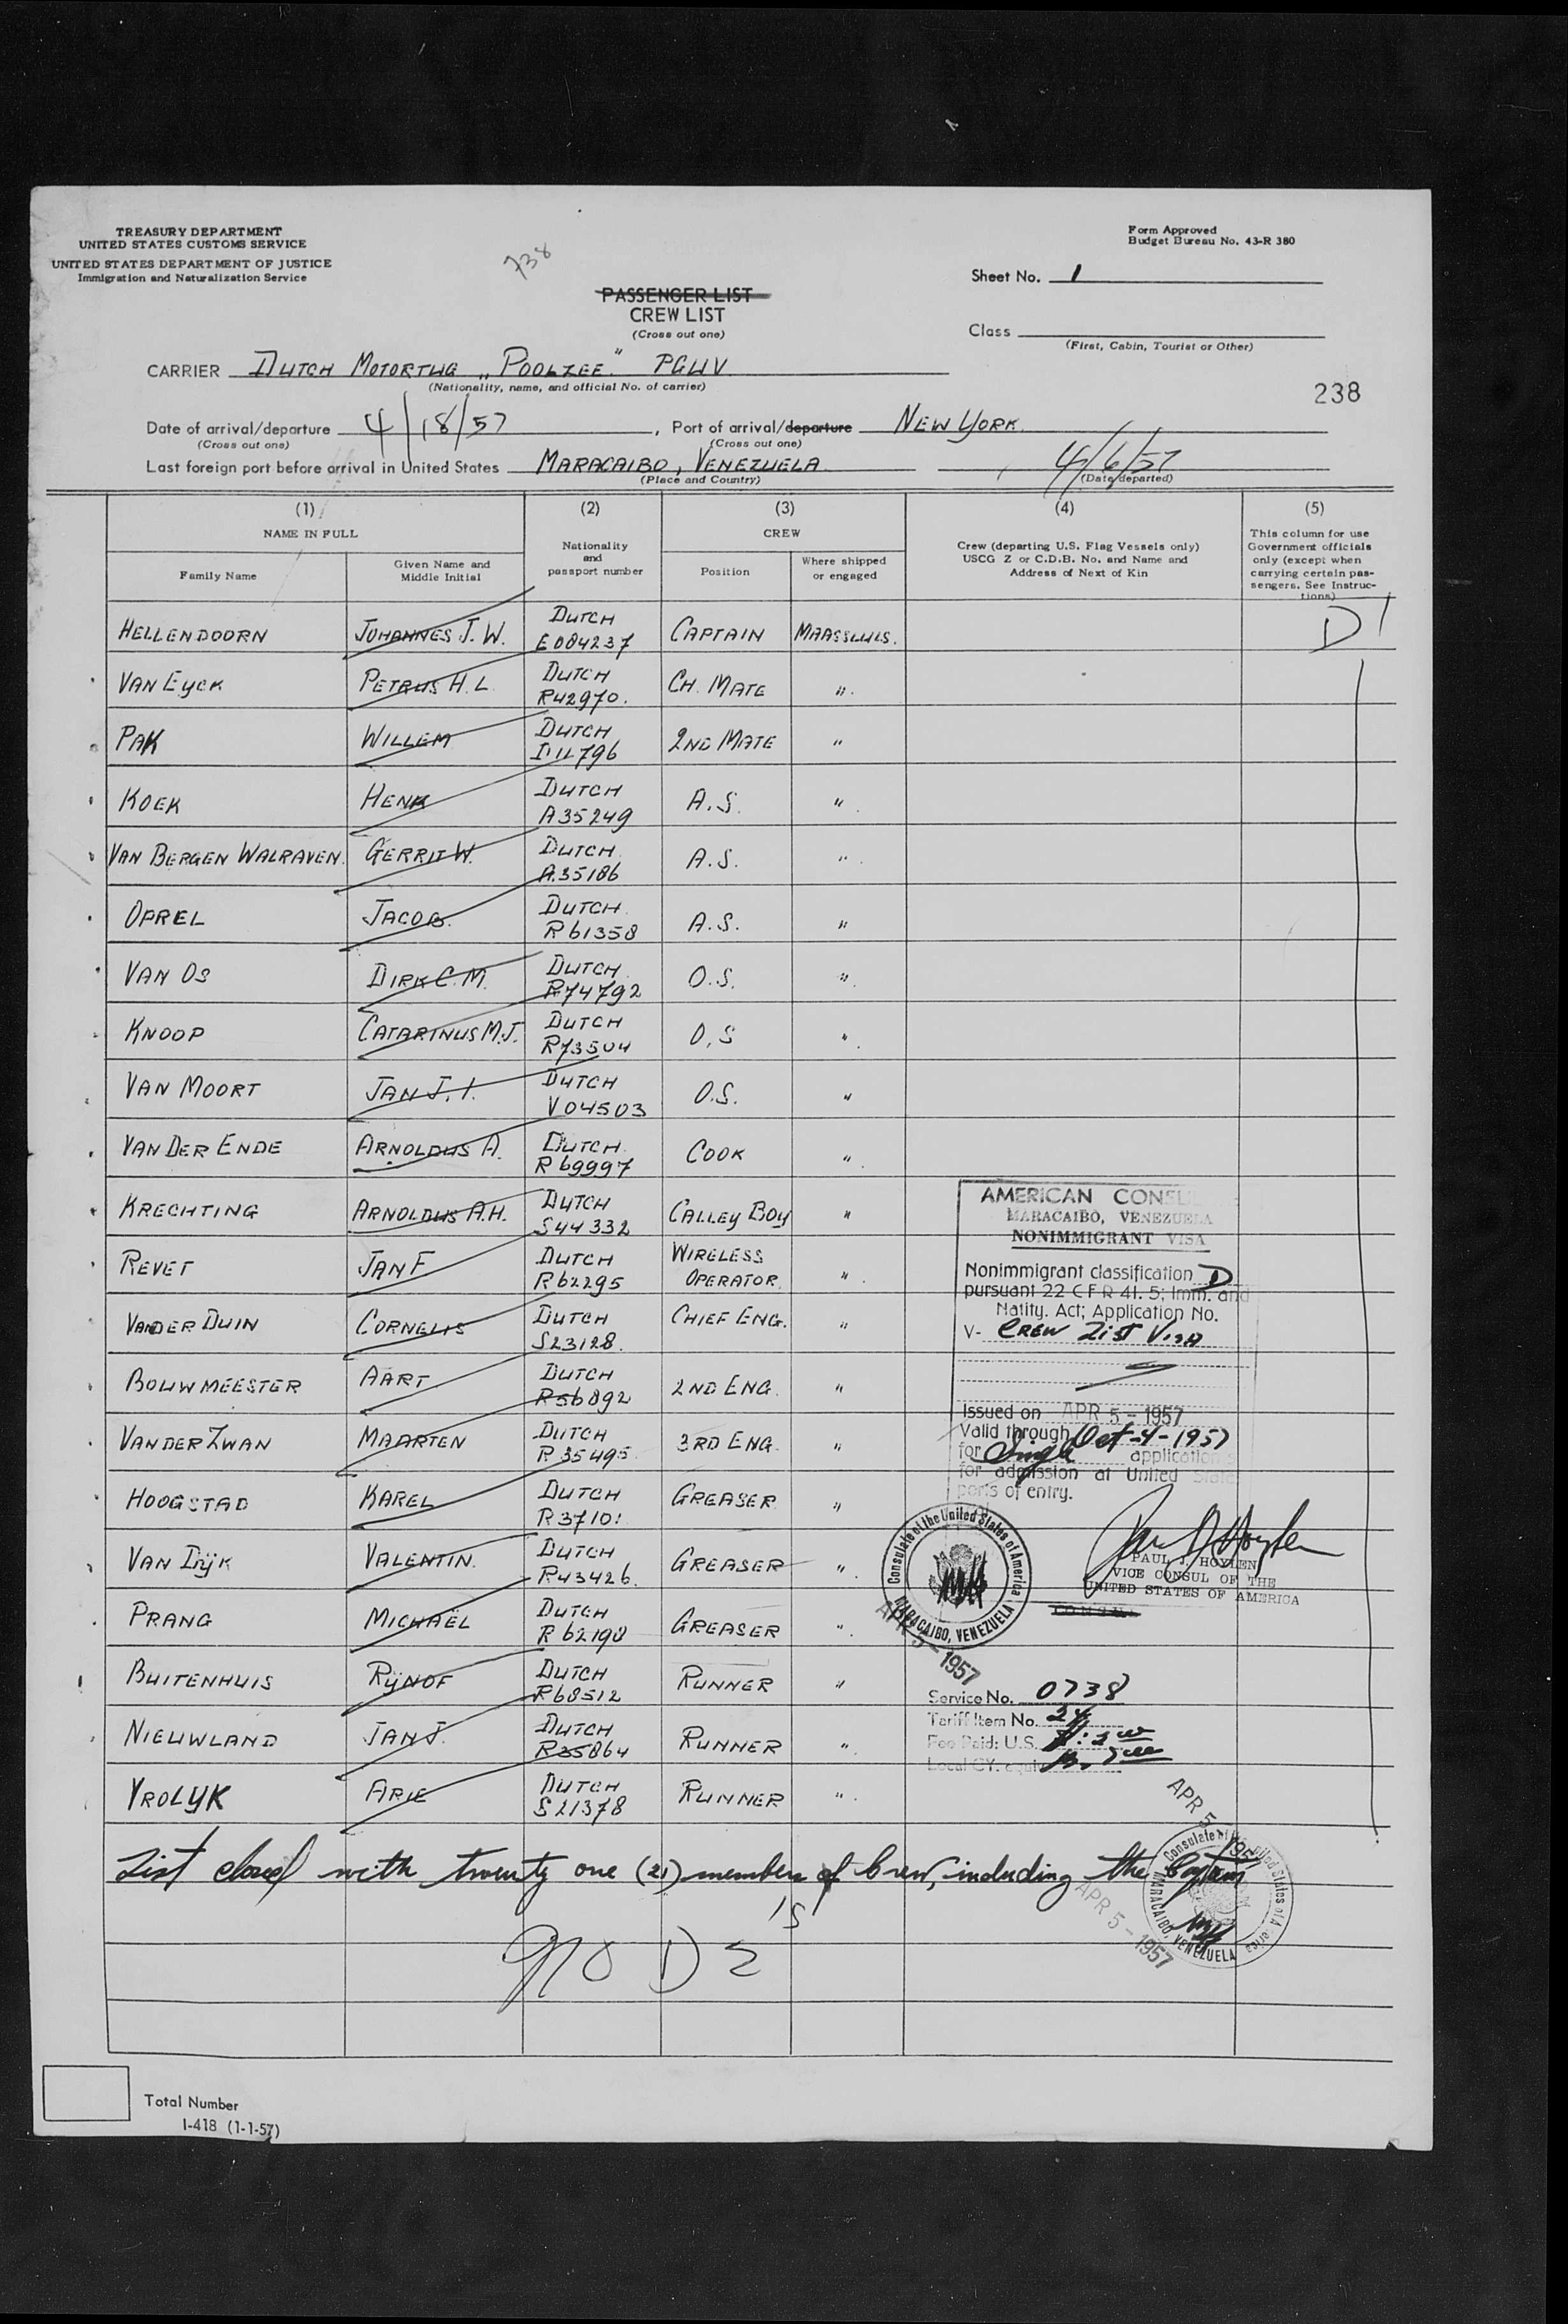 TREASURY DEPARTMENT
UNITED STATES CUSTOMS SERVICE
UNITED STATES DEPARTMENT OF JUSTICE
Immigration and Naturalization Service
738
Form Approved
Budget Bureau No. 43-R 380
Sheet No. 1
PASSENGER LIST
CREW LIST
(Cross out one)
Class
(First, Cabin, Tourist or Other)
CARRIER DUTCH MOTORTUG „POOLZEE" PGUV
(Nationality, name, and official No. of carrier)
238
Date of arrival/departure 4/18/57, Port of arrival/departure NEW YORK.
(Cross out one) (Cross out one)
Last foreign port before arrival in United States MARACAIBO, VENEZUELA 4/6/57
(Place and Country) (Date departed)
(1) (2) (3) (4) (5)
NAME IN FULL
Family Name
Given Name and
Middle Initial
Nationality
and
passport number
CREW
Position
Where shipped
or engaged
Crew (departing U.S. Flag Vessels only)
USCG Z or C.D.B. No. and Name and
Address of Next of Kin
This column for use
Government officials
only (except when
carrying certain pas-
sengers. See Instruc-
tions)
HELLENDOORN JOHANNES J. W. DUTCH E084237 CAPTAIN MAASSLUIS. D1
VAN EYCK PETRUS H. L. DUTCH R42970. CH. MATE "
PAK WILLEM DUTCH 2ND MATE "
KOEK HENK DUTCH A35249 A.S. "
VAN BERGEN WALRAVEN. GERRIT W. DUTCH A.35186 A.S. "
OPREL JACOB. DUTCH R61358 A.S. "
VAN OS DIRK C. M. DUTCH R74792 O.S. "
KNOOP CATARINUS M.J. DUTCH R73504 O.S "
VAN MOORT JAN J. I. DUTCH V04503 O.S. "
VAN DER ENDE ARNOLDUS A. DUTCH R69997 COOK "
KRECHTING ARNOLDUS A.H. DUTCH S44332 CALLEY BOY "
REVET JAN F DUTCH R62295 WIRELESS OPERATOR "
VAN DER DUIN CORNELIS DUTCH S23128. CHIEF ENG. "
BOUWMEESTER AART DUTCH R56892 2ND ENG. "
VAN DER ZWAN MAARTEN DUTCH R35495 3RD ENG. "
HOOGSTAD KAREL DUTCH R37101 GREASER "
VAN DIJK VALENTIN. DUTCH R43426. GREASER "
PRANG MICHAËL DUTCH R62198 GREASER "
BUITENHUIS RIJNOF DUTCH R68512 RUNNER "
NIEUWLAND JAN J. DUTCH R35864 RUNNER "
VROLYK ARIE DUTCH S21378 RUNNER "
AMERICAN CONSUL
MARACAIBO, VENEZUELA
NONIMMIGRANT VISA
Nonimmigrant classification D
pursuant 22 CFR 41. 5; Imm. and
Natlty. Act; Application No.
V- CREW LIST VISA
Issued on APR 5 - 1957
Valid through Oct-4-1957
for Single application
for admission at United States
ports of entry.
PAUL J. HOYLEN
VICE CONSUL OF THE
UNITED STATES OF AMERICA
Consulate of the United States of America
MARACAIBO, VENEZUELA
APR 5 - 1957
Service No. 0738
Tariff Item No. 24
Fee Paid: U.S.
Local CY. equiv.
APR 5 - 1957
List closed with twenty one (21) members of Crew, including the Captain
Consulate of the United States of America
MARACAIBO, VENEZUELA
APR 5 - 1957
No D 2 's
Total Number
I-418 (1-1-57)